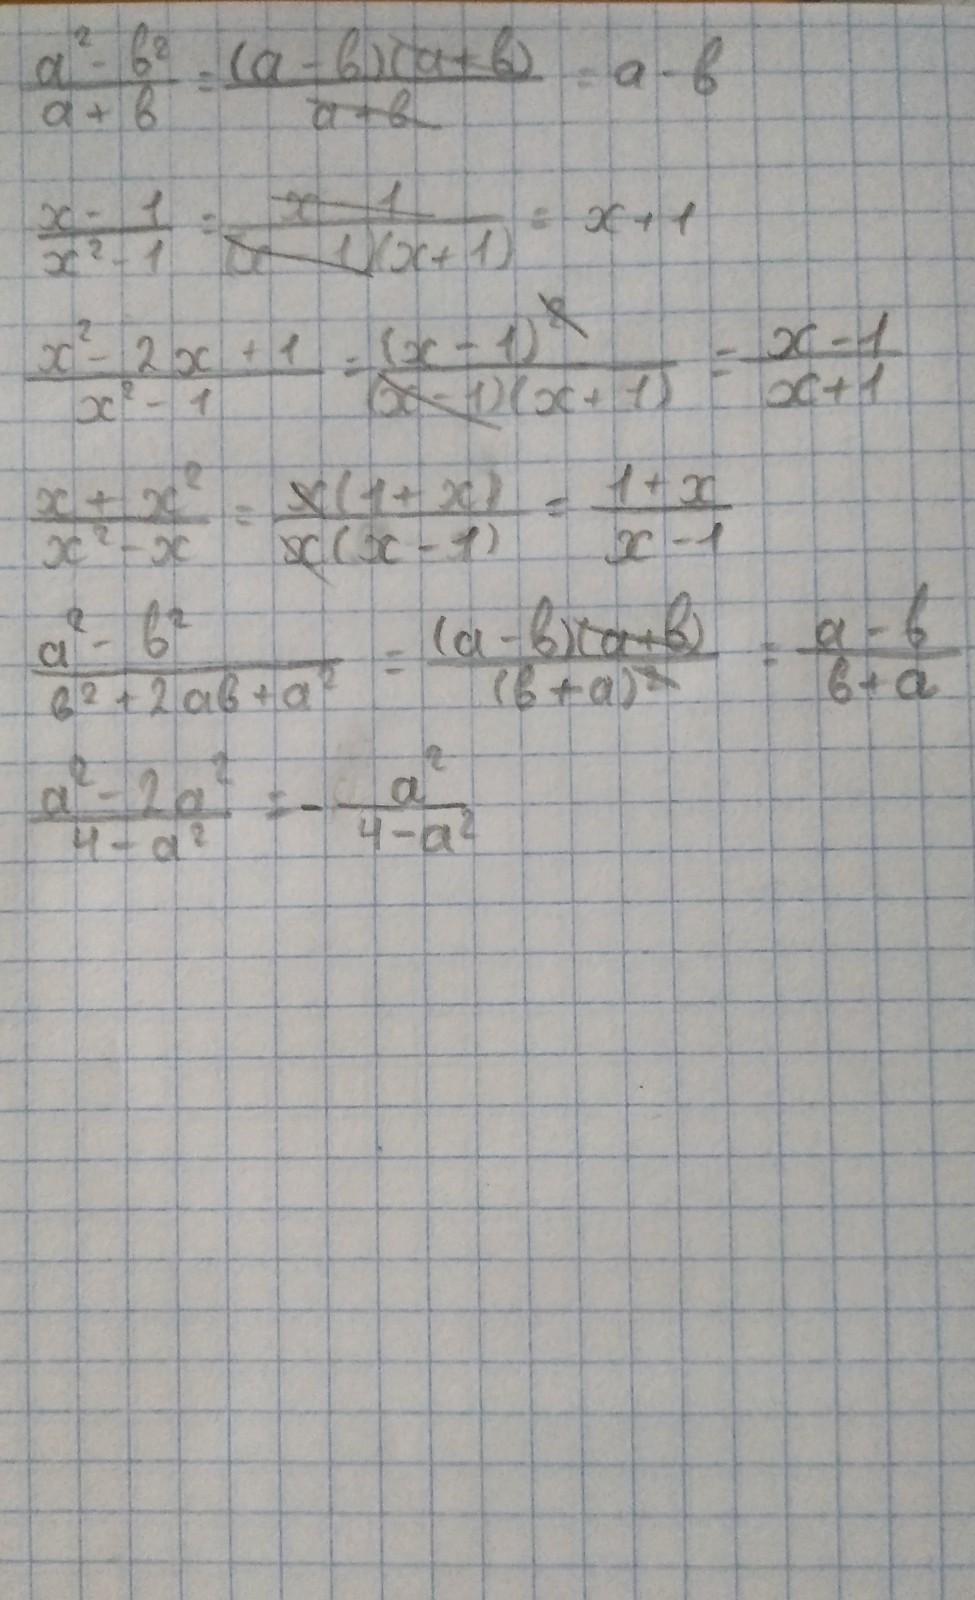 (a² - b²)/(a + b) = ((a - b)(a + b))/(a + b) = a - b
(x - 1)/(x² - 1) = (x - 1)/((x - 1)(x + 1)) = x + 1
(x² - 2x + 1)/(x² - 1) = (x - 1)²/((x - 1)(x + 1)) = (x - 1)/(x + 1)
(x + x²)/(x² - x) = (x(1 + x))/(x(x - 1)) = (1 + x)/(x - 1)
(a² - b²)/(b² + 2ab + a²) = ((a - b)(a + b))/(b + a)² = (a - b)/(b + a)
(a² - 2a²)/(4 - a²) = - a²/(4 - a²)